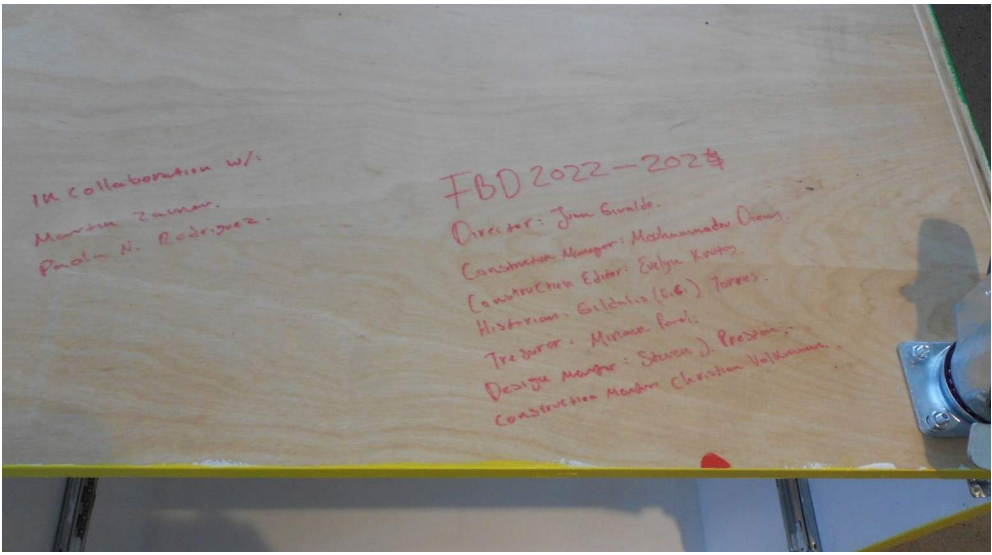 In Collaboration w/:
Martin Zamar.
Paola N. Rodriguez.
FBD 2022-202
Director: Juan Giraldo.
Construction Manager: Mouhamadou
Construction Editor: Evelyn
Historian: Gildalis (GiGi) Torres.
Tresurer:
Design Mentor: Steven J. Preston.
Construction Mentor Christian Volkmann.